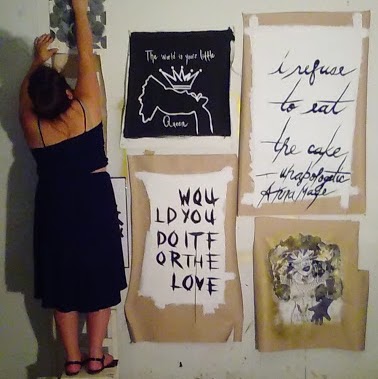 The world is your little
Queen
i refuse
to eat
the cake
- unapologetic
Anna Mae
WOU
LD YOU
DO IT F
OR THE
LOVE